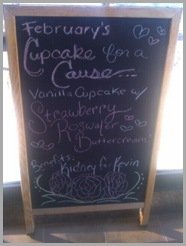 February's
Cupcake for a
Cause...
Vanilla Cupcake w/
Strawberry
Rosewater
Buttercream
Benefits:
Kidney for Kevin